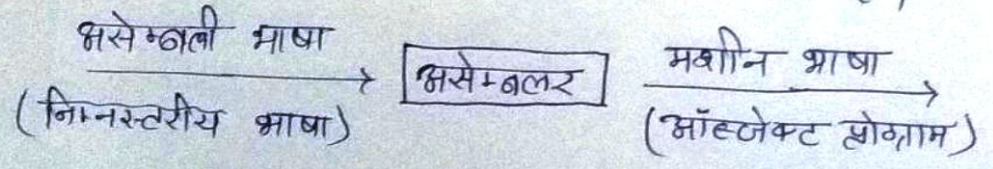 असेम्बली भाषा
(निम्नस्तरीय भाषा)
असेम्बलर
मशीन भाषा
(ऑब्जेक्ट प्रोग्राम)